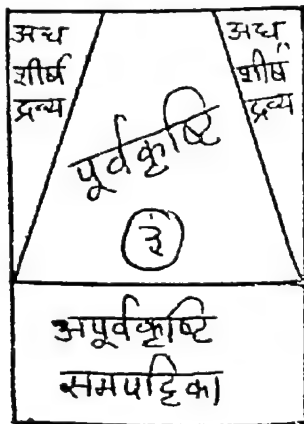 अध
शीर्ष
द्रव्य
अध
शीर्ष
द्रव्य
पूर्वकृष्टि
अपूर्वकृष्टि
समपट्टिका